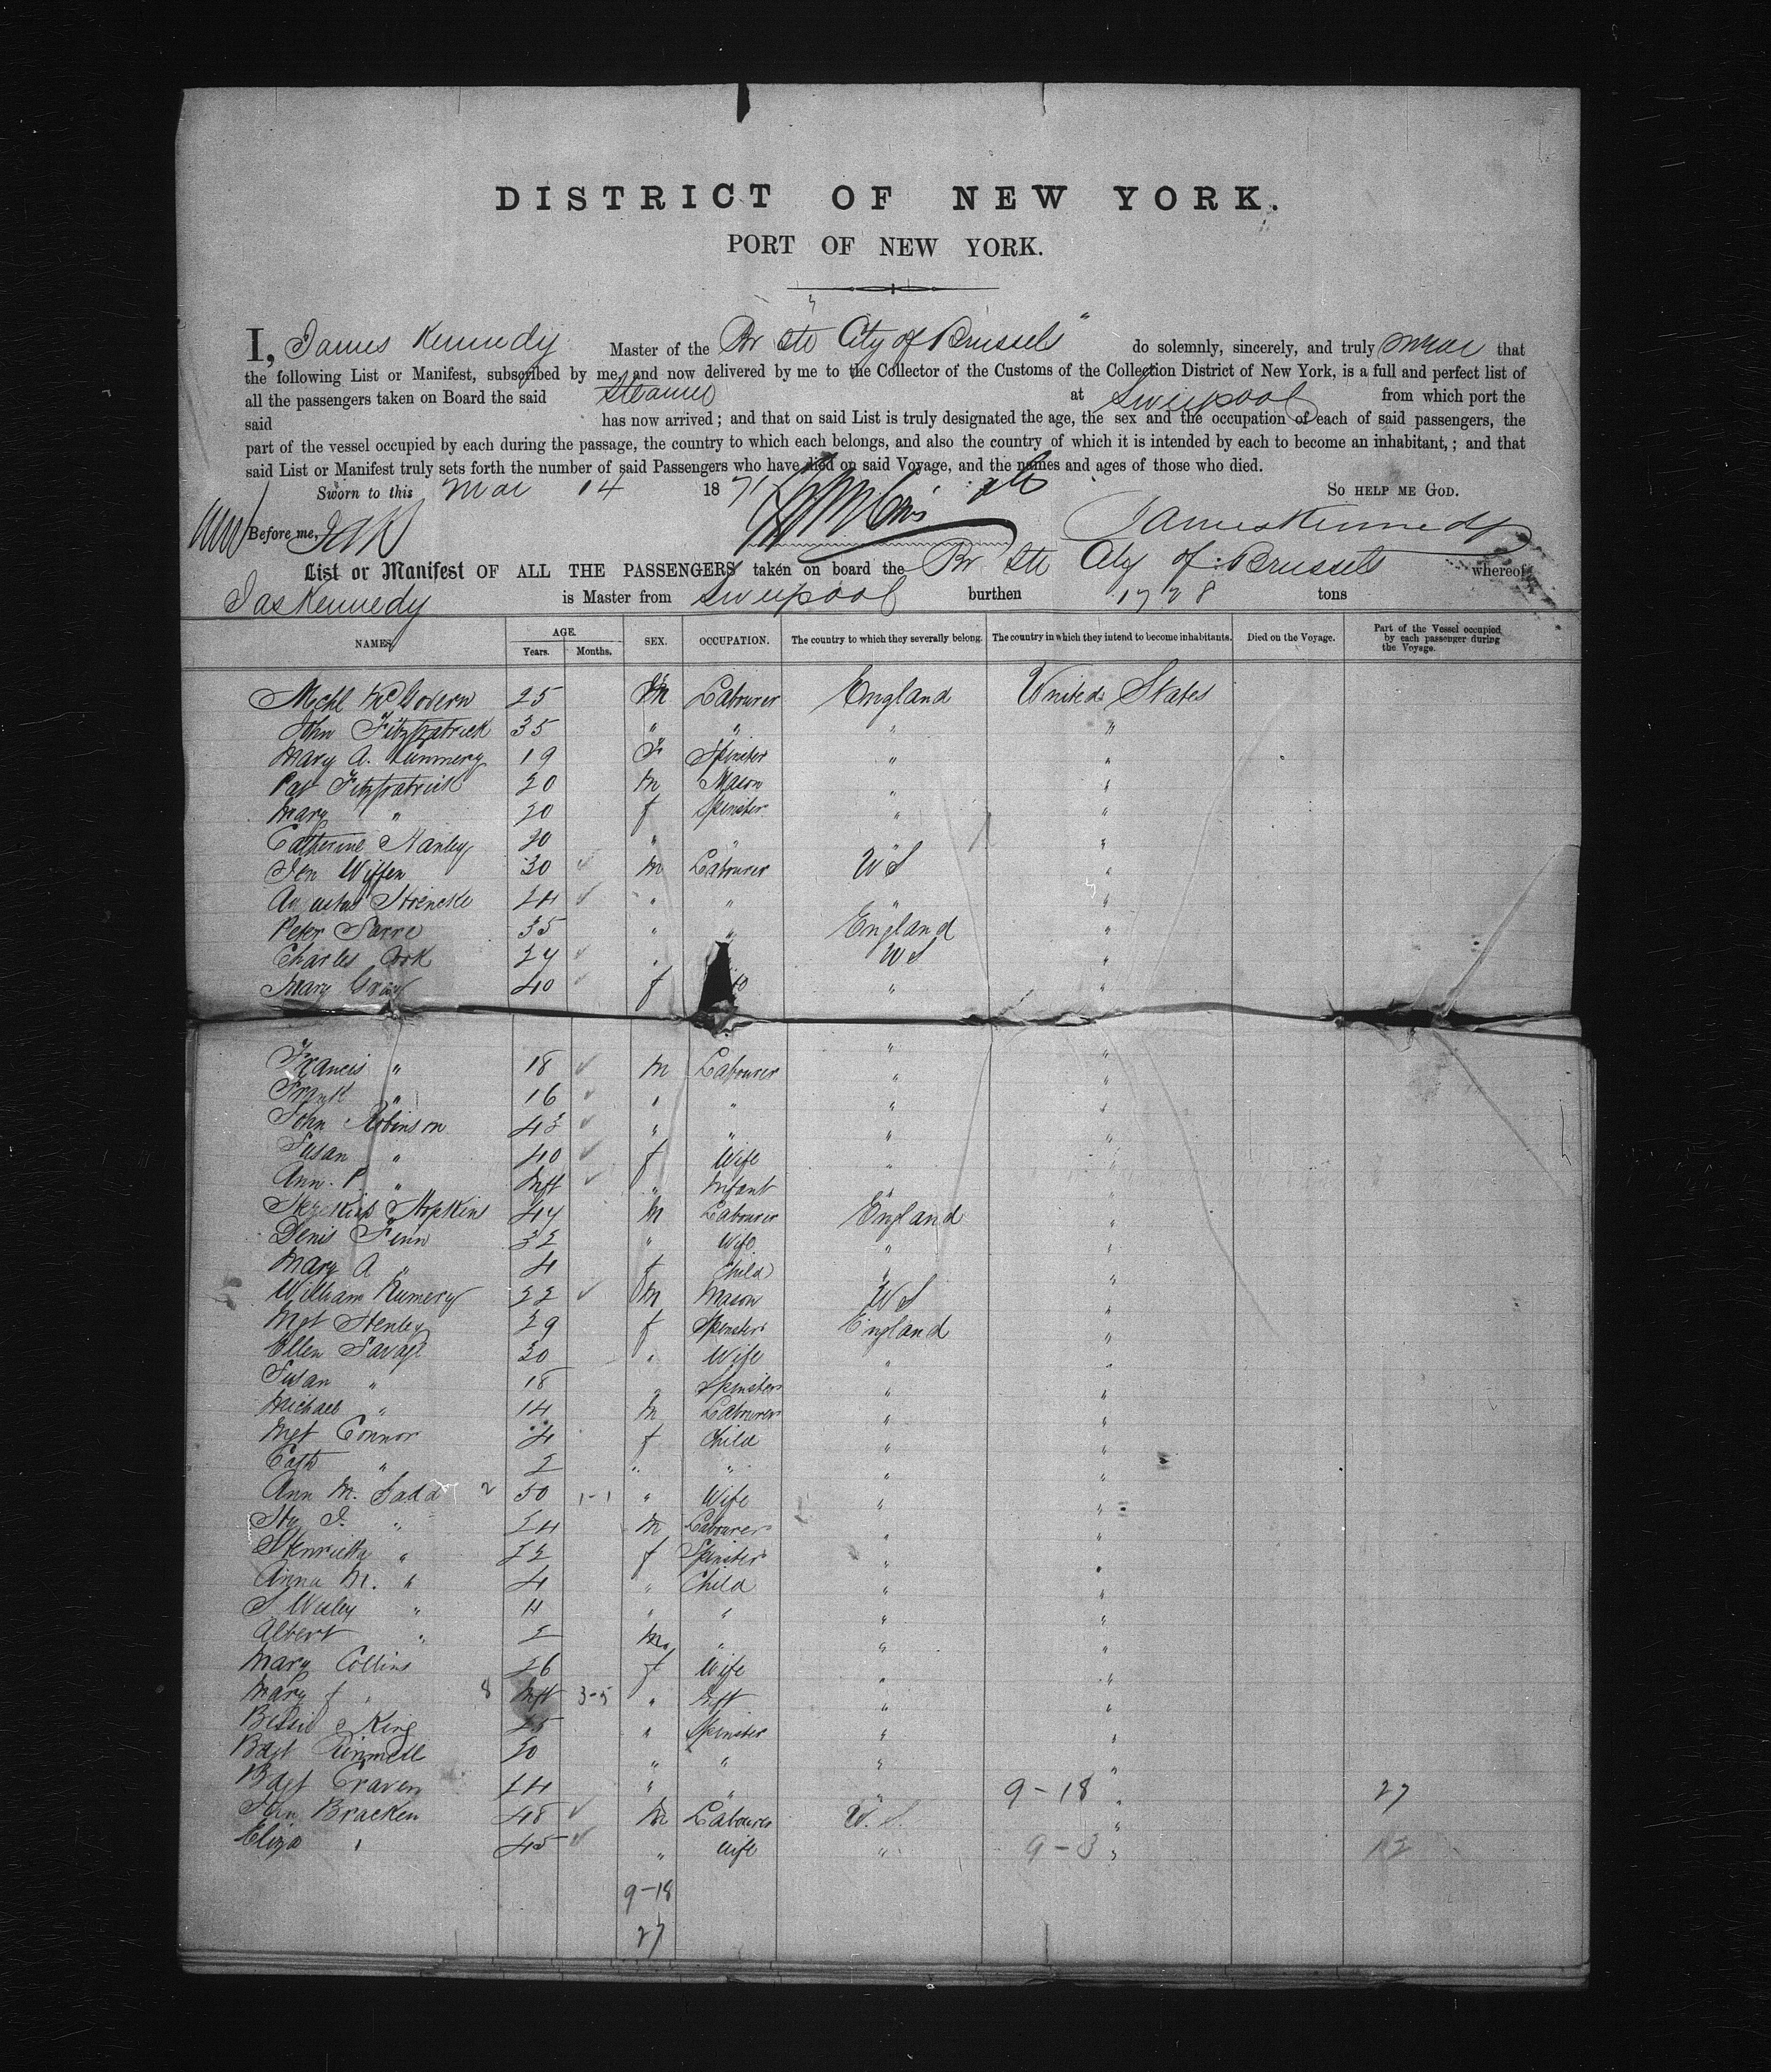 DISTRICT OF NEW YORK.
PORT OF NEW YORK.
I, James Kennedy Master of the Br Str City of Brussels" do solemnly, sincerely, and truly swear that
the following List or Manifest, subscribed by me, and now delivered by me to the Collector of the Customs of the Collection District of New York, is a full and perfect list of
all the passengers taken on Board the said Steamer at Liverpool from which port the
said has now arrived; and that on said List is truly designated the age, the sex and the occupation of each of said passengers, the
part of the vessel occupied by each during the passage, the country to which each belongs, and also the country of which it is intended by each to become an inhabitant,; and that
said List or Manifest truly sets forth the number of said Passengers who have died on said Voyage, and the names and ages of those who died.
Sworn to this Mar 14 1871 So help me God.
Before me, James Kennedy
List or Manifest OF ALL THE PASSENGERS taken on board the Br Str City of Brussels whereof
Jas Kennedy is Master from Liverpool burthen 1728 tons
NAMES. AGE. Years. Months. SEX. OCCUPATION. The country to which they severally belong. The country in which they intend to become inhabitants. Died on the Voyage. Part of the Vessel occupied by each passenger during the Voyage.
Michl McGovern 25 M Labourer England United States
John Fitzpatrick 35 " " " "
Mary A. 19 F Spinster " "
Pat Fitzpatrick 20 M Mason " "
Mary " 20 f Spinster " "
Catherine Hanley 20 " " " "
Wiffen 30 M Labourer U S "
24 " " " "
Peter Sarre 35 " " England "
Charles 24 " U S "
Mary Gray 40 f " "
" "
Francis " 18 M Labourer " "
Frank " 16 " " " "
John Robinson 43 " " " "
Susan " 40 f Wife " "
Ann P. " Inft " Infant " "
Hezekiah Hopkins 44 M Labourer England "
Denis Finn 32 " Wife " "
Mary A " 4 f Child " "
William Numery 22 M Mason U S "
Mgt Henley 29 f Spinster England "
Ellen Savage 30 " Wife " "
Susan " 18 " Spinster " "
Michael " 14 M Labourer " "
Mgt Connor 4 f Child " "
Cath " 2 " " " "
Ann M. Ladd 2 50 1-1 " Wife " "
Hy J. " 24 M Labourer " "
Henrietta " 22 f Spinster " "
Anna M. " 4 " Child " "
S Wesley " 4 " " " "
Albert " 2 M " " "
Mary Collins 26 f Wife " "
Mary f " 8 Inft 3-5 " Inft " "
Bessie King 25 " Spinster " "
Bdgt 20 " " " "
Bdgt Craven 24 " " " 9-18 " 27
Jhn Bracken 48 M Labourer U. S. "
Eliza " 45 " Wife " 9-3 " 12
9-18
27